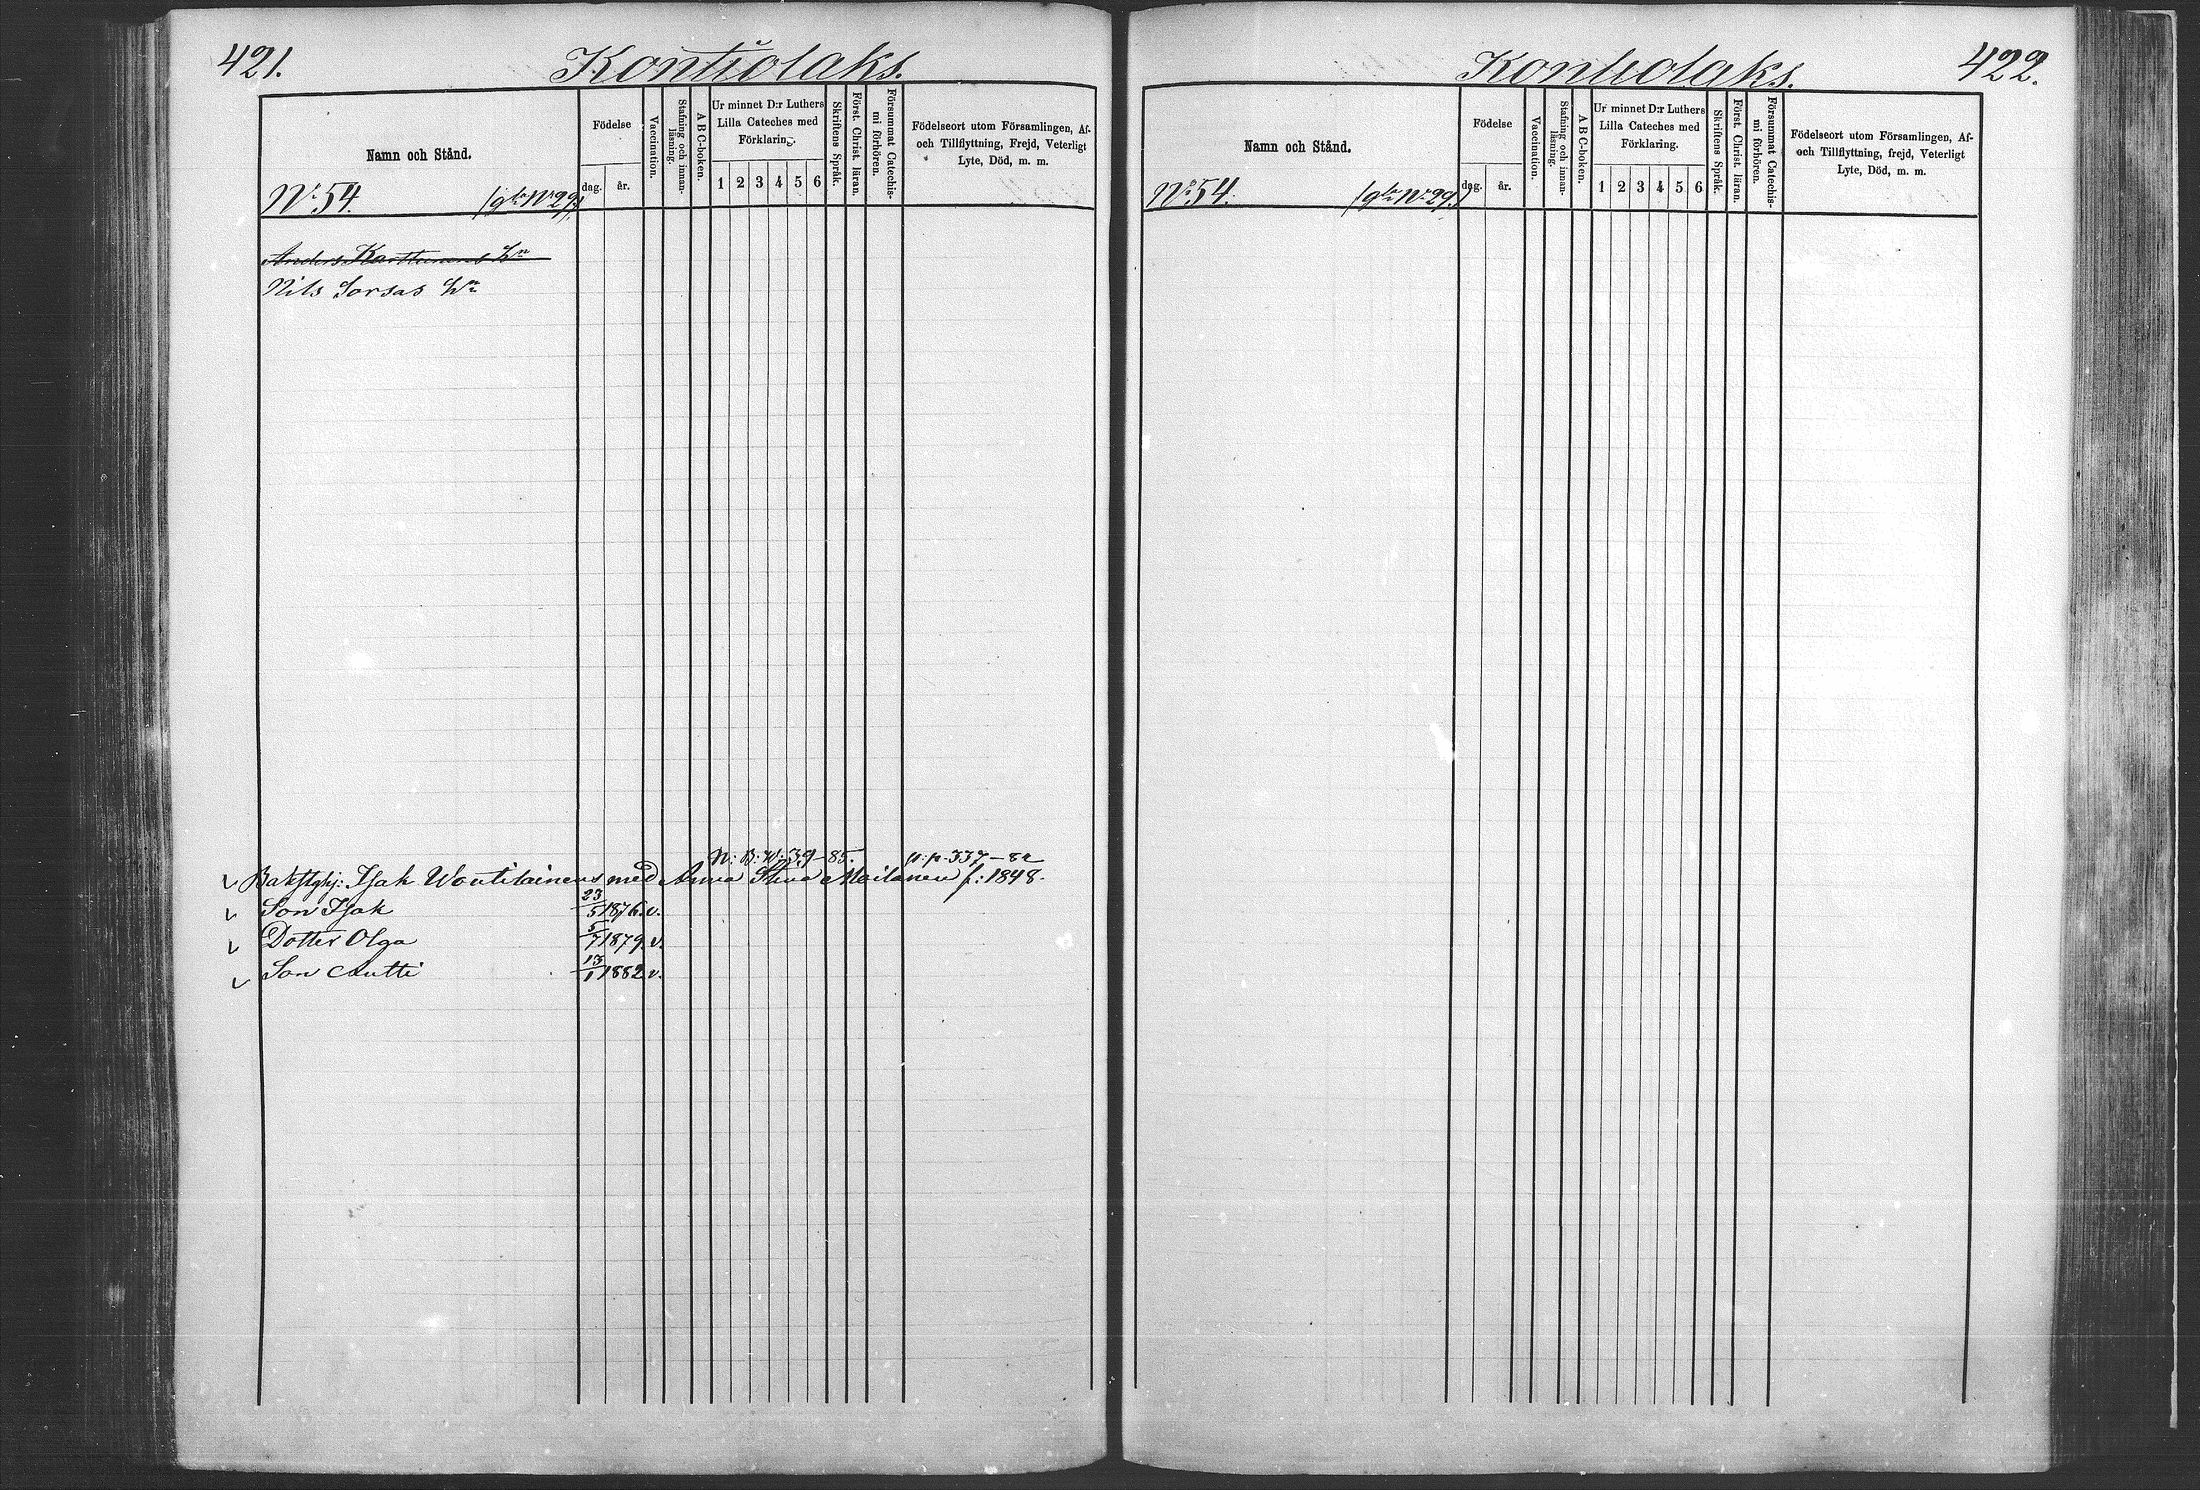 421.
Kontiolaks.
Namn och Stånd.
Födelse
dag.
år.
Vaccination.
Stafning och innan-
läsning.
A B C-boken.
Ur minnet D:r Luthers
Lilla Cateches med
Förklaring.
1 2 3 4 5 6
Skriftens Språk.
Först. Christ. läran.
Försummat Catechis-
mi förhören.
Födelseort utom Församlingen, Af-
och Tillflyttning, Frejd, Veterligt
Lyte, Död, m. m.
N:o 54. (gla N:o 29.)
Anders Karttunens
Nils Sorsas
N: B: W: 39-85. p. 337-82
Isak Woutilainens med Anna Stina Moilanen f: 1848.
Son Isak 23/5 1876. v.
Dotter Olga 5/7 1879. v.
Son Antti 13/1 1882 v.
422.
Kontiolaks.
Namn och Stånd.
Födelse
dag.
år.
Vaccination.
Stafning och innan-
läsning.
A B C-boken.
Ur minnet D:r Luthers
Lilla Cateches med
Förklaring.
1 2 3 4 5 6
Skriftens Språk.
Först. Christ. läran.
Försummat Catechis-
mi förhören.
Födelseort utom Församlingen, Af-
och Tillflyttning, frejd, Veterligt
Lyte, Död, m. m.
N:o 54. (gla N:o 29.)